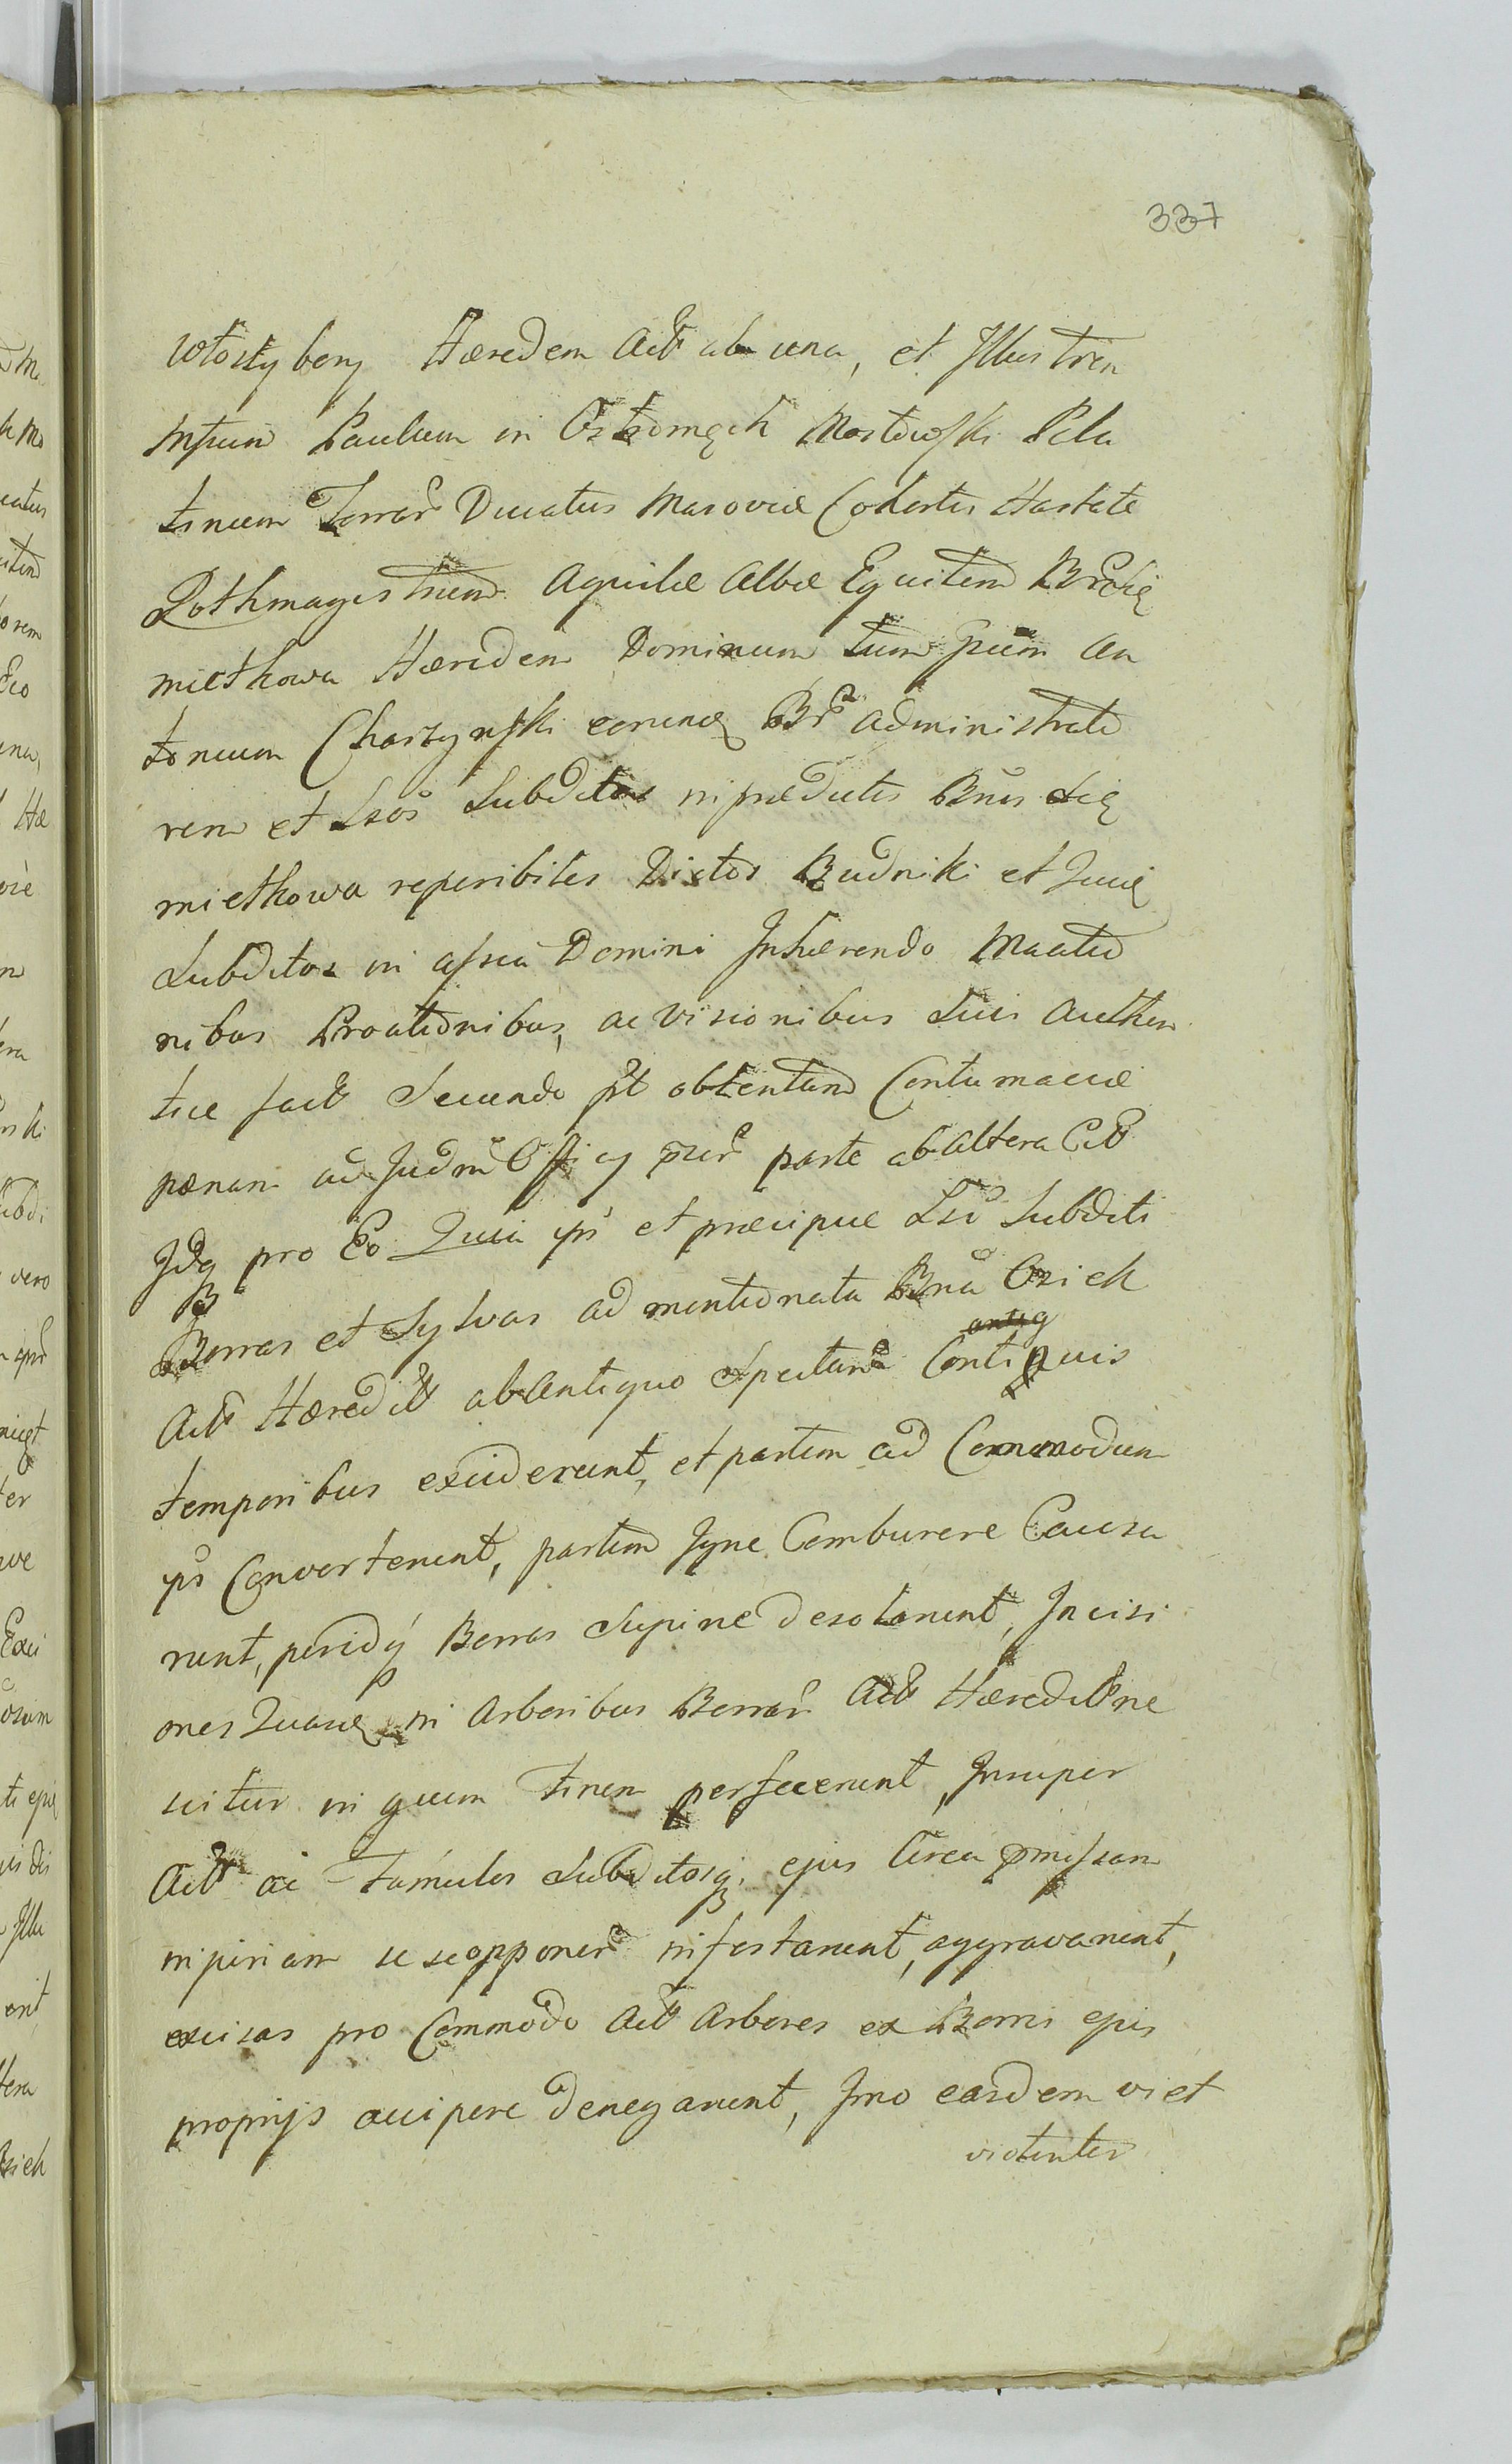 337
Włostybory Hæredem Act ab una, et Illustrem
Mgfum Paulum in Ostromęck Mostowski Pala
tinum Terrar Ducatus Masoviæ Cohortis Hastatæ
Rothmagistrum Aquilæ Albæ Equitem Bror Się
miętkowa Hæredem Dominum tum Gsum An
tonium Charzynski eorumq Br Administrato
rem et Lsos Subditos in prædictis Bnis Się
miętkowa reperibiles Dictos Budniki et Suæ
Subditos in assia Domini Inhærendo Maõtio
nibus Proõtionibus, ac Visionibus Suis Authen
tice fact Secundo pt obtentam Contumaciæ
pænam ad Judm Officy pñr parte ab altera Cit
Idq pro Eo Quia ipi et præcipue Lsi Subditi
Borras et Sylvas ad mentionata Bna Osiek
Act Hæredit ab Antiquo Spectan Contiguis
temporibus exciderunt, et partem ad Commodum
ipi Converterunt, partem Igne Comburere Causa
runt, peridq Borras Supine desolarunt, Incisi
ones Quasq in Arboribus Borrar Act Heredit ne
scitur in quem finem perfecerunt, Insuper
Act ac Famulos Subditosq ejus Circa pmissam
injuriam se se opponen infestarunt, aggravarunt,
excisas pro Commodo Act Arbores ex Borris ejus
proprijs accipere denegarunt, Imo easdem vi et
violenter